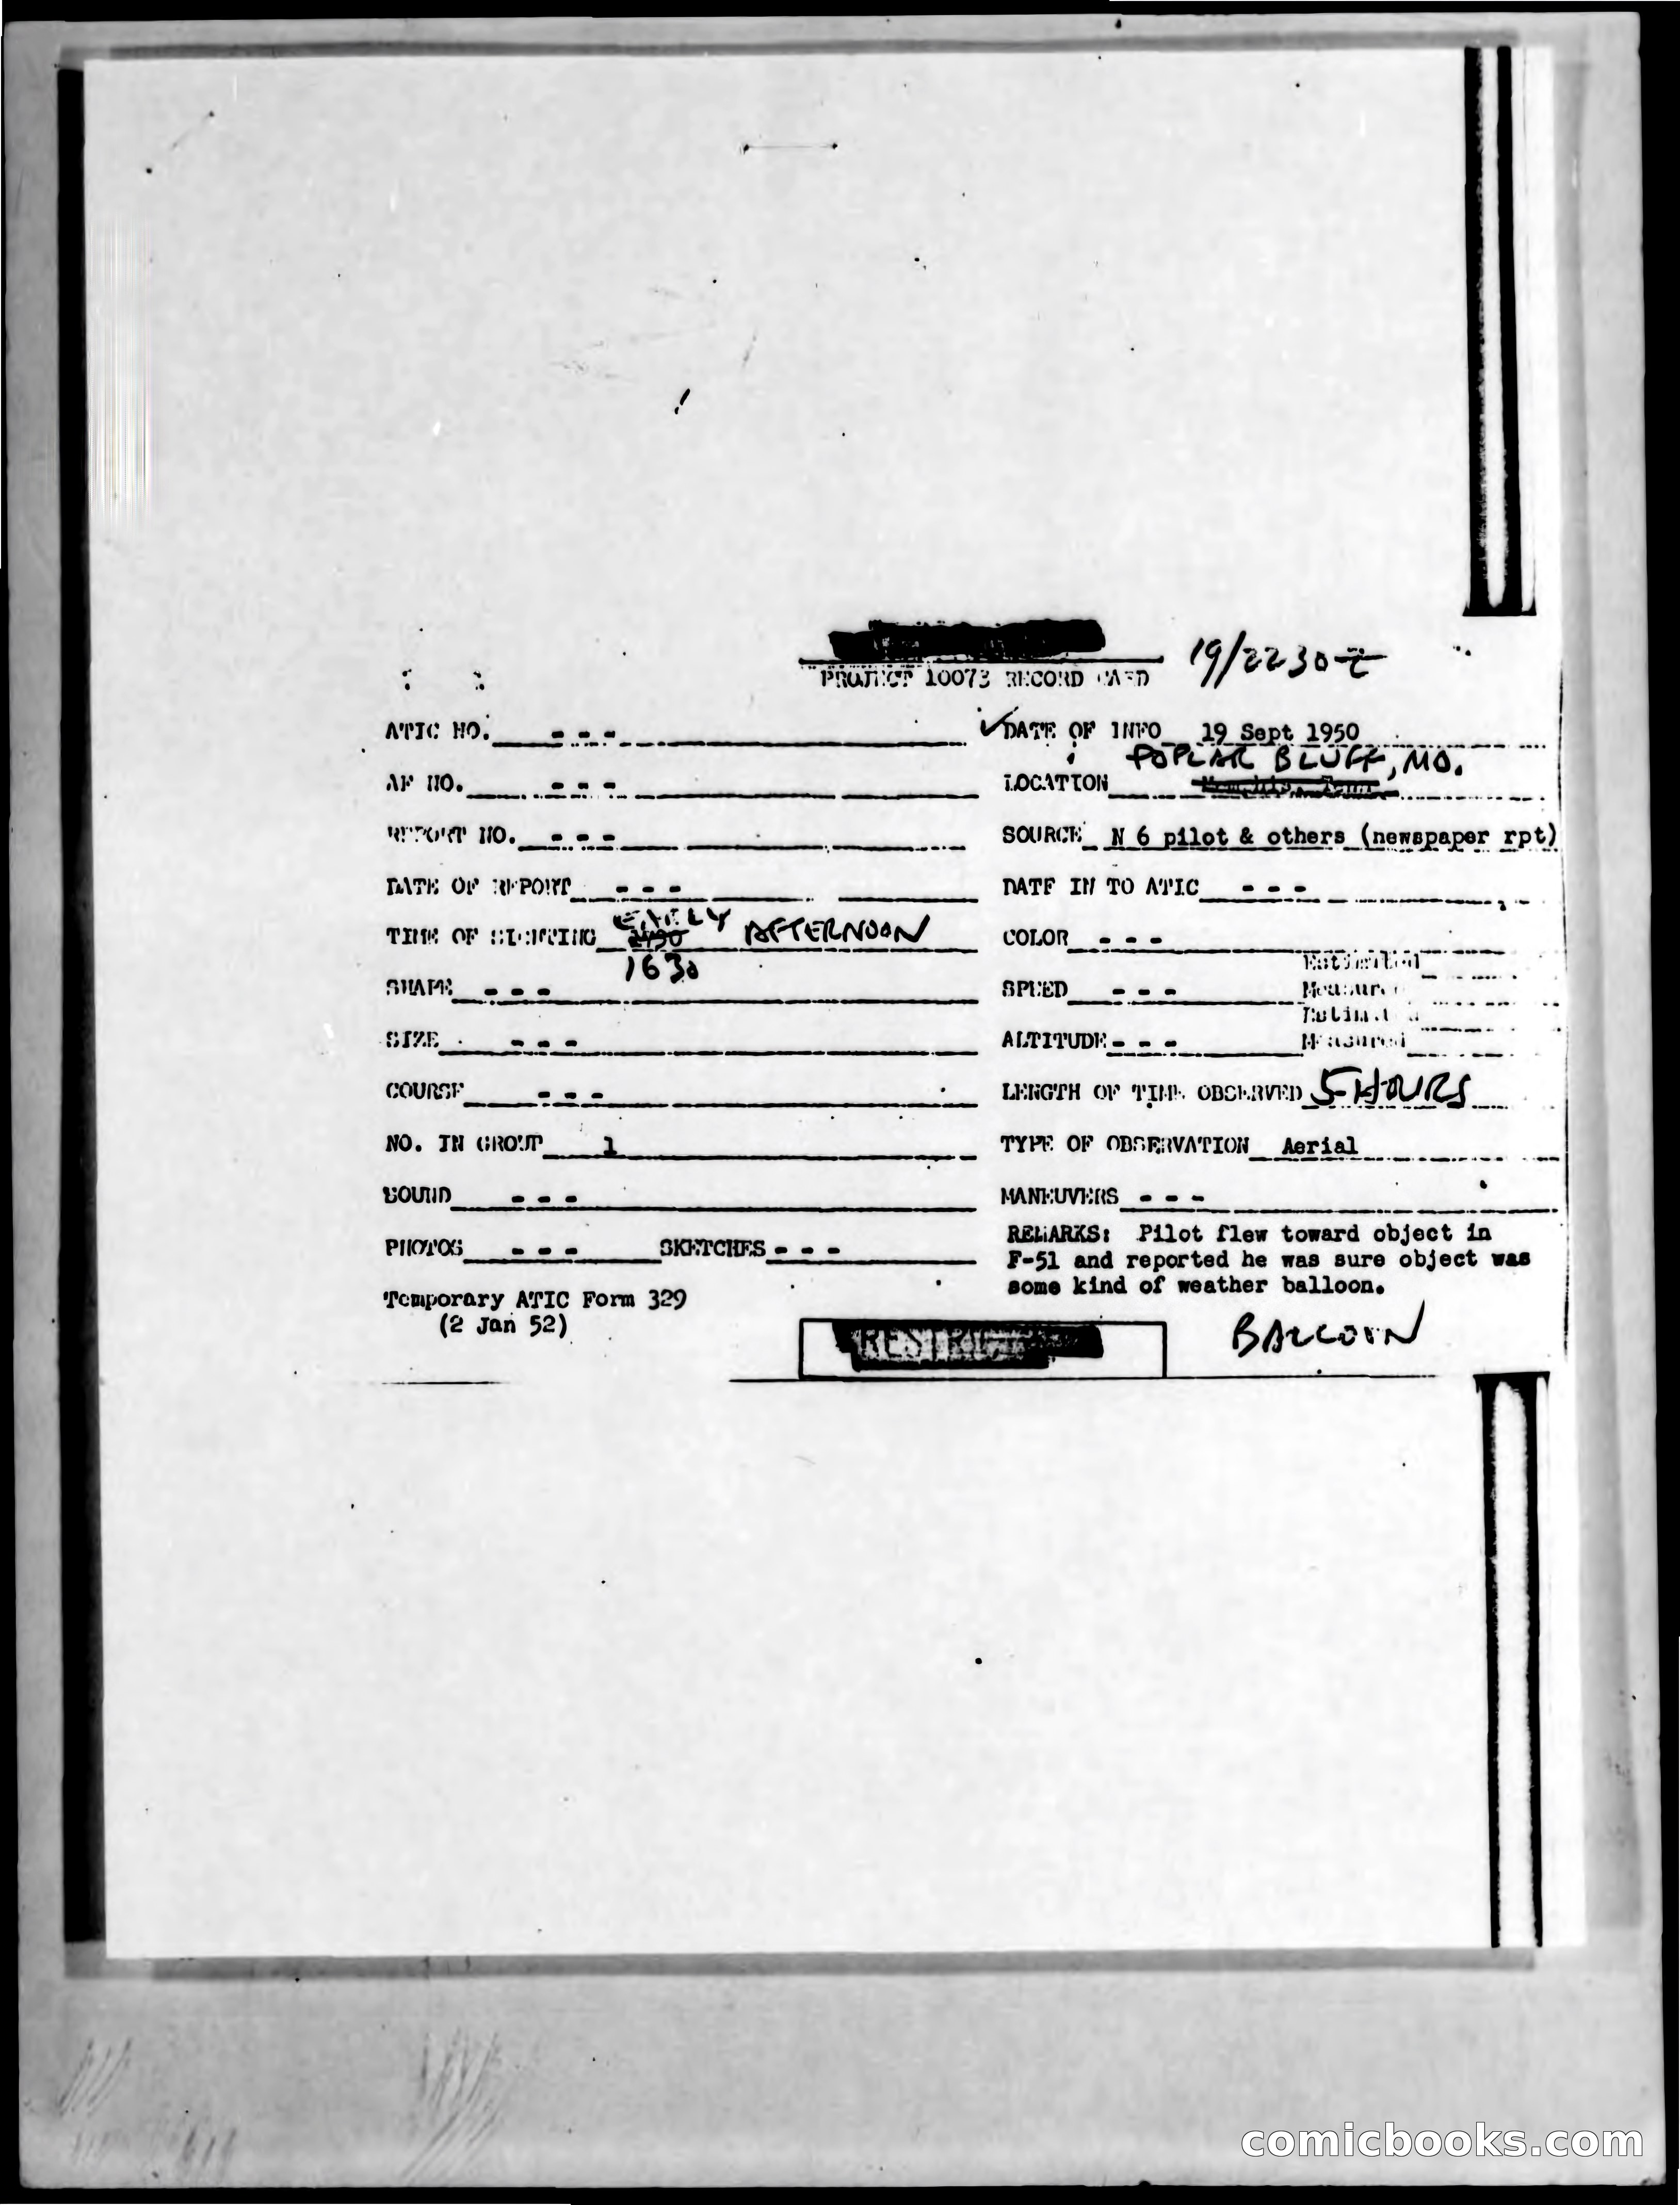 19/2230Z
PROJECT 10073 RECORD CARD
ATIC NO. - - -
✓DATE OF INFO 19 Sept 1950
AF NO. - - -
POPLAR BLUFF, MO.
LOCATION Memphis, Tenn
REPORT NO. - - -
SOURCE N 6 pilot & others (newspaper rpt)
DATE OF REPORT - - -
DATE IN TO ATIC - - -
TIME OF SIGHTING EARLY AFTERNOON
1630
COLOR - - -
SHAPE - - -
SPEED - - - Estimated
Measured
SIZE - - -
ALTITUDE - - - Estimated
Measured
COURSE - - -
LENGTH OF TIME OBSERVED 5 HOURS
NO. IN GROUP 1
TYPE OF OBSERVATION Aerial
SOUND - - -
MANEUVERS - - -
PHOTOS - - - SKETCHES - - -
REMARKS: Pilot flew toward object in
F-51 and reported he was sure object was
some kind of weather balloon.
Temporary ATIC Form 329
(2 Jan 52)
RESTRICTED
BALLOON
comicbooks.com